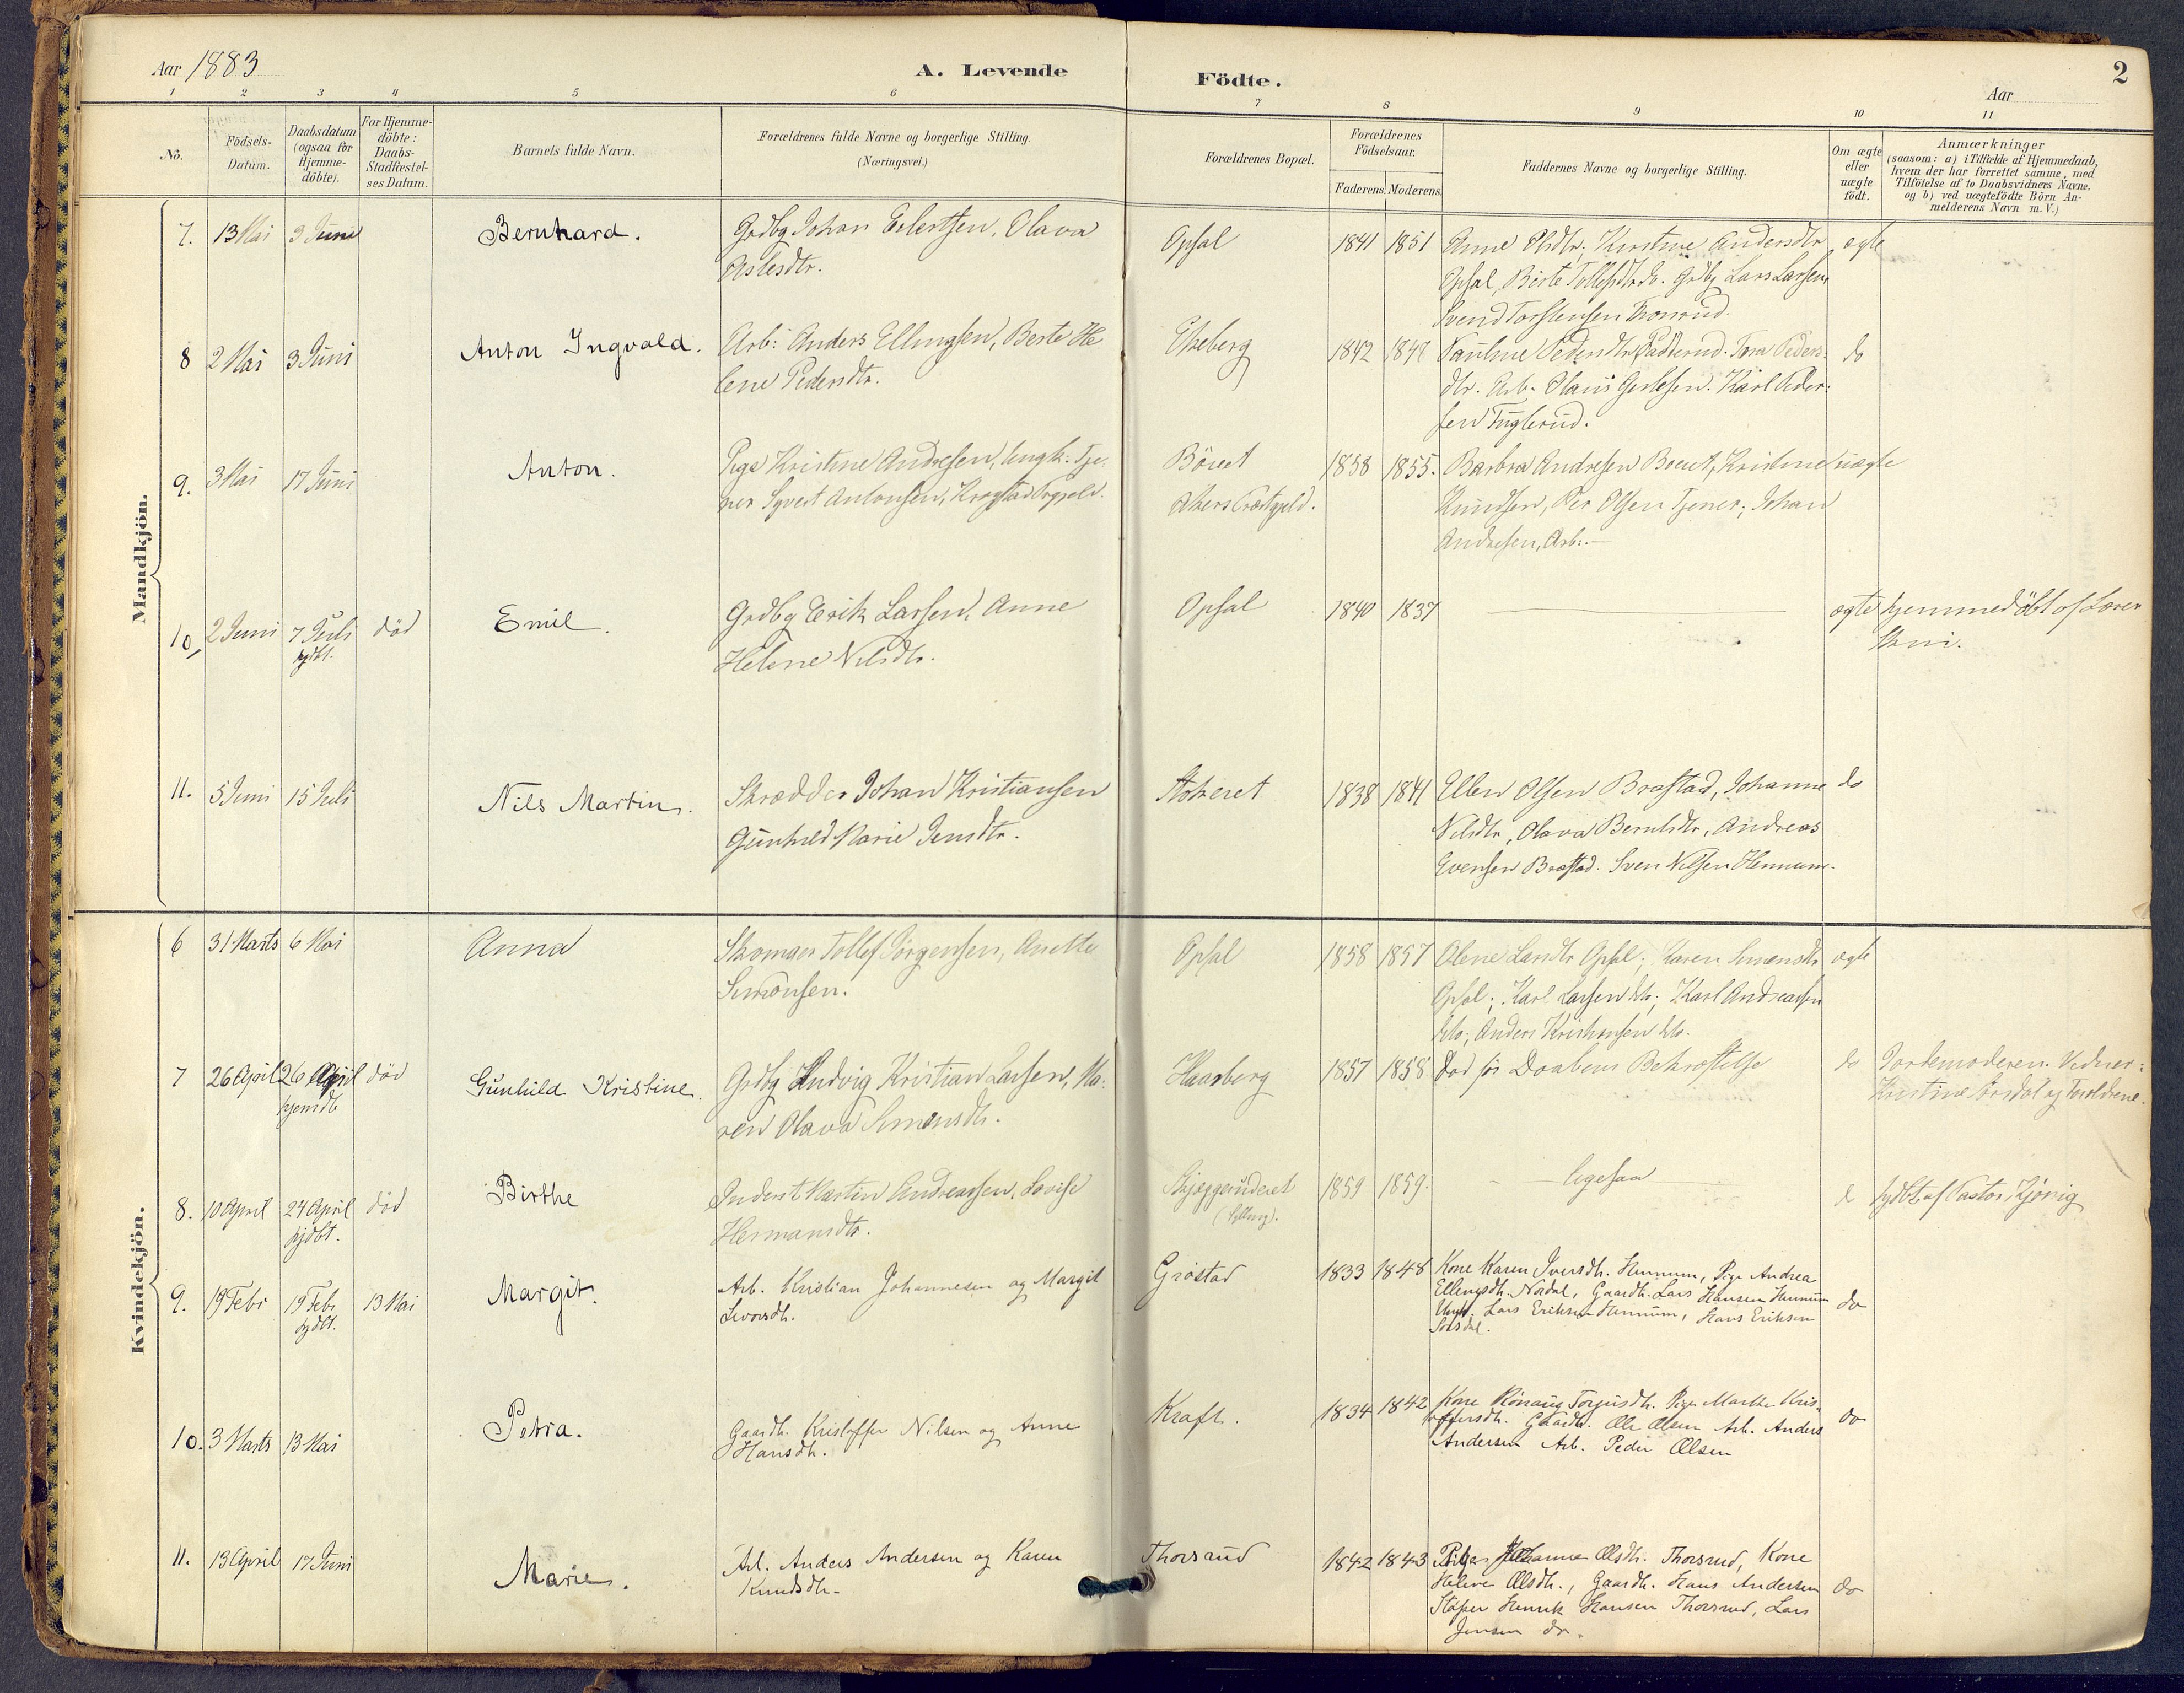 Aar 1883
A. Levende Födte.
Aar
2
1 2 3 4 5 6 7 8 9 10 11
No.
Födsels-
Datum.
Daabsdatum
(ogsaa for
Hjemme-
döbte).
For Hjemme-
döbte:
Daabs-
Stadfæstel-
ses Datum.
Barnets fulde Navn.
Forældrenes fulde Navne og borgerlige Stilling.
(Næringsvei.)
Forældrenes Bopæl.
Forældrenes
Födselsaar.
Faderens. Moderens.
Faddernes Navne og borgerlige Stilling.
Om ægte
eller
uægte
født.
Anmærkninger
(saasom: a) i Tilfælde af Hjemmedaab,
hvem der har forrettet samme, med
Tilföielse af to Daabsvidners Navne,
og b) ved uægtefödte Börn An-
melderens Navn m. V.)
Mandkjön.
7. 13 Mai 3 Juni
Bernhard.
Grdbg Johan Eilertsen, Olava
Aslesdtr.
Opsal
1841 1851
Anne Olsdtr, Kirstine Andersdtr
Opsal, Birte Grdbg Lars Larsen,
Svend Torstensen
ægte
8 2 Mai 3 Juni
Anton Ingvald.
Arb: Anders Ellingsen, Berte He
lene Pedersdtr.
Ekeberg
1842 1848
Pauline Pedersdtr Tora Peders-
dtr. Arb. Olaus Karl Peder-
sen Fuglerud.
do
9. 3 Mai 17 Juni
Anton.
Pige Kristine Andresen, Ungk: Tje
ner Syvert Antonsen, Krogstad Prgjeld.
Böreet
Akers Præstgjeld.
1858 1855.
Barbra Andresen Kristine
Knudsen, Per Olsen Tjener, Johan
Andresen, Arb:.-
uægte
10, 2 Juni 7 Juli død
hjdbt.
Emil.
Grdbg Erik Larsen, Anne
Helene Nilsdtr.
Opsal
1840 1837
ægte hjemmedöbt af Lærer
11. 5 Juni 15 Juli
Nils Martin.
Skrædder Johan Kristiansen
Gunhild Marie Jensdtr.
Stokeret
1838 1841
Ellen Olsen Brastad, Johanne
Nilsdtr, Olava Berntsdtr, Andreas
Evensen Brastad. Sven Nilsen Hennum.
do
Kvindekjön.
6 31 Marts 6 Mai
Anna
Skomager Tollef Jörgensen, Anette
Simonsen.
Opsal
1858 1857
Olene Larsdtr Opsal; Karen Simensdtr
Opsal; Karl Larsen do; Karl Andreassen
do; Anders Kristiansen do.
ægte
7 26 April 26 April död
hjemdb
Gunhild Kristine.
Grdbg Ludvig Kristian Larsen, Ma-
ren Olava Simensdtr.
Haasberg
1857 1858
Död för Daabens Bekræftelse
do Jordemoderen. Vidner:
Kristine og Forældrene.
8. 10 April 24 April död
hjdbt.
Birthe
Inderst Martin Andreassen, Lovise
Hermansdtr.
Skjæggeruderet
(Sylling).
1859 1859.
ligesaa
d hjdbt. af Pastor
9. 19 Febr 19 Febr 13 Mai
hjdbt.
Margit.
Arb. Kristian Johannesen og Margit
Ivorsdtr.
Gröstad
1833 1848
Kone Karen Iversdtr. Hennum, Pige Andrea
Ellingsdtr. Nordal, Gaardbr. Lars Hansen Hennum
Ungk. Lars Eriksen Hennum, Hans Eriksen
Sörsdal.
do
10. 3 Marts 13 Mai
Petra.
Gaardbr. Kristoffer Nilsen og Anne
Hansdtr.
Kraft.
1834 1842
Kone Rönaug Torgusdtr. Pige Marthe Kris-
toffersdtr. Gaardbr. Ole Olsen Arb. Anders
Andersen Arb. Peder Olsen
do
11. 13 April 17 Juni
Marie.
Arb. Anders Andersen og Karen
Knudsdtr.
Thorsrud
1842 1843
Johanne Olsdtr. Thorsrud, Kone
Helene Olsdtr., Gaardbr. Hans Andersen
Henrik Hansen Thorsrud, Lars
Jensen do.
do